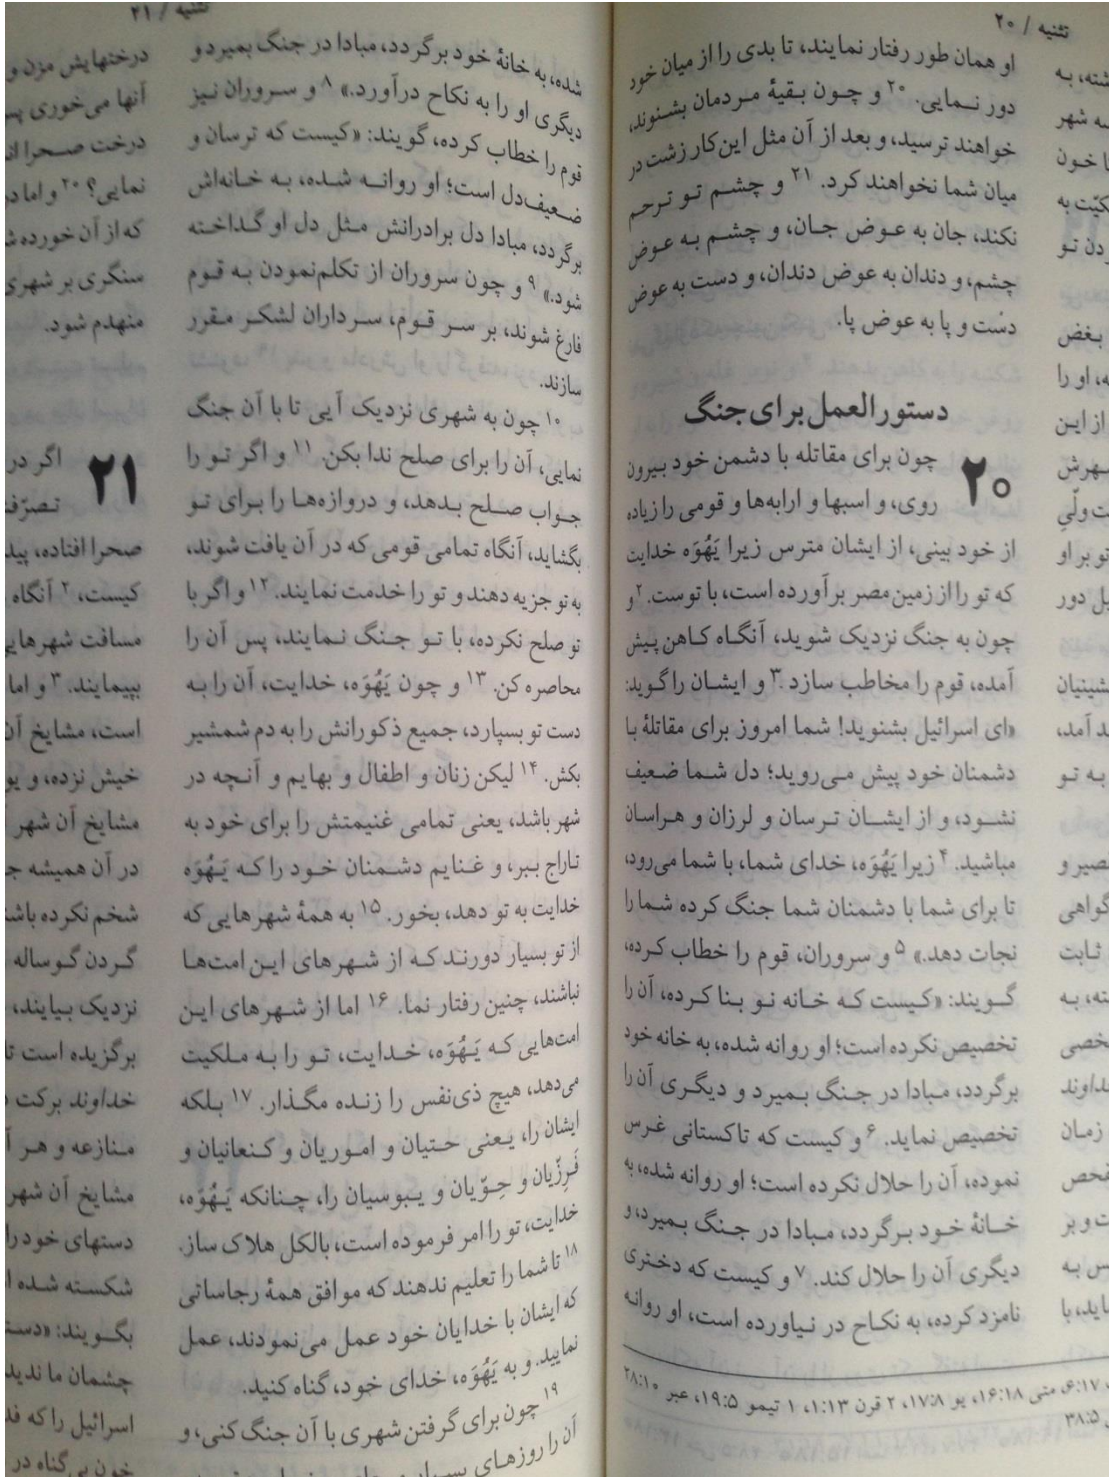 تثنیه / ۲۰
او همان طور رفتار نمایند، تا بدی را از میان خود
دور نـمایی. ۲۰ و چـون بـقیهٔ مـردمان بشـنوند،
خواهند ترسید، و بعد از آن مثل این کار زشت در
میان شما نخواهند کرد. ۲۱ و چشـم تـو تـرحـم
نکند، جان به عـوض جـان، و چشـم بـه عـوض
چشم، و دندان به عوض دندان، و دست به عوض
دست و پا به عوض پا.
دستورالعمل برای جنگ
۲۰
چون برای مقاتله با دشمن خود بیرون
روی، و اسبها و ارابه‌ها و قومی را زیاده
از خود بینی، از ایشان مترس زیرا یَهُوَه خدایت
که تو را از زمین مصر برآورده است، با توست. ۲ و
چون به جنگ نزدیک شوید، آنگاه کـاهن پیش
آمده، قوم را مخاطب سازد. ۳ و ایشـان را گـوید:
«ای اسرائیل بشنوید! شما امروز برای مقاتلهٔ بـا
دشمنان خود پیش مـی‌روید؛ دل شـما ضـعیف
نشـود، و از ایشـان تـرسان و لرزان و هـراسان
مباشید. ۴ زیرا یَهُوَه، خدای شما، با شما می‌رود،
تا برای شما با دشمنان شما جنگ کرده شما را
نجات دهد.» ۵ و سروران، قوم را خطاب کرده،
گـویند: «کـیست کـه خـانه نـو بـنا کـرده، آن را
تخصیص نکرده است؛ او روانه شده، به خانه خود
برگردد، مـبادا در جـنگ بـمیرد و دیگـری آن را
تخصیص نماید. ۶ و کیست که تاکستانی غـرس
نموده، آن را حلال نکرده است؛ او روانه شده، به
خـانهٔ خـود بـرگردد، مـبادا در جـنگ بـمیرد، و
دیگری آن را حلال کند. ۷ و کیست که دختری
نامزد کرده، به نکـاح در نـیاورده است، او روانه
۶:۱۷، متی ۱۶:۱۸، یو ۱۷:۸، ۲ قرن ۱:۱۳، ۱ تیمو ۱۹:۵، عبر ۲۸:۱۰
۳۸:۵
تثنیه / ۲۱
شده، به خانهٔ خود برگردد، مبادا در جنگ بمیرد و
دیگری او را به نکاح درآورد.» ۸ و سـروران نـیز
قوم را خطاب کرده، گویند: «کیست که ترسان و
ضـعیف‌دل است؛ او روانـه شـده، بـه خـانه‌اش
برگردد، مبادا دل برادرانش مـثل دل او گـداخـته
شود.» ۹ و چون سروران از تکلم‌نمودن به قـوم
فارغ شوند، بر سـر قـوم، سـرداران لشکـر مـقرر
سازند.
۱۰ چون به شهری نزدیک آیی تا با آن جنگ
نمایی، آن را برای صلح ندا بکن. ۱۱ و اگر تـو را
جـواب صـلح بـدهد، و دروازه‌هـا را بـرای تـو
بگشاید، آنگاه تمامی قومی که در آن یافت شوند،
به تو جزیه دهند و تو را خدمت نمایند. ۱۲ و اگر با
تو صلح نکرده، با تـو جـنگ نـمایند، پس آن را
محاصره کن. ۱۳ و چون یَهُوَه، خدایت، آن را بـه
دست تو بسپارد، جمیع ذکورانش را به دم شمشیر
بکش. ۱۴ لیکن زنان و اطفال و بهایم و آنـچه در
شهر باشد، یعنی تمامی غنیمتش را برای خود به
تاراج بـبر، و غـنایم دشـمنان خـود را کـه یَـهُوَه
خدایت به تو دهد، بخور. ۱۵ به همهٔ شهرهایی که
از تو بسیار دورنـد کـه از شـهرهای ایـن امت‌هـا
نباشند، چنین رفتار نما. ۱۶ اما از شـهرهای ایـن
امت‌هایی کـه یَـهُوَه، خـدایت، تـو را بـه مـلکیت
می‌دهد، هیچ ذی‌نفس را زنـده مگـذار. ۱۷ بـلکه
ایشان را، یـعنی حـتیان و امـوریان و کـنعانیان و
فَرِزّیان و حِـوّیان و یـبوسیان را، چـنانکه یَـهُوَه،
خدایت، تو را امر فرموده است، بالکل هلاک ساز.
۱۸ تا شما را تعلیم ندهند که موافق همهٔ رجاساتی
که ایشان با خدایان خود عمل می‌نمودند، عمل
نمایید. و به یَهُوَه، خدای خود، گناه کنید.
۱۹ چون برای گرفتن شهری با آن جنگ کنی، و
آن را روزهـای
درختهایش مزن و
آنها می‌خوری
درخت صـحرا
نمایی؟ ۲۰ و اما
که از آن خورده
سنگری بر شهری
منهدم شود.
۲۱
اگر در
صحرا افتاده،
کیست، ۲ آنگاه
مسافت
بپیمایند. ۳ و اما
است، مشایخ
خیش نزده، و
مشایخ آن شهر
در آن همیشه
شخم نکرده
گـردن گـوساله
نزدیک بـیایند،
برگزیده است
خداوند برکت
مـنازعه و هـر
مشایخ آن شهر
دستهای خود را
شکسته شده
بگـویند:
چشمان ما
اسرائیل را که
خون بی‌گناه در